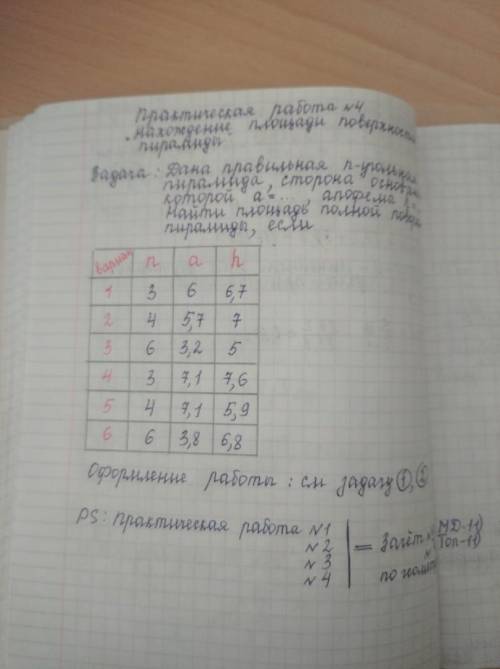 Практическая работа №4
нахождение площади поверхности
пирамиды
Задача: Дана правильная n-угольная
пирамида, сторона основан
которой a=..., апофема
Найти площадь полной повер
пирамиды, если
вариан n a h
1 3 6 6,7
2 4 5,7 7
3 6 3,2 5
4 3 7,1 7,6
5 4 7,1 5,9
6 6 3,8 6,8
Оформление работы: см задачу 1,
PS: Практическая работа №1
№2
№3
№4
= Зачёт
по геомет
МД-11)
Топ-11)